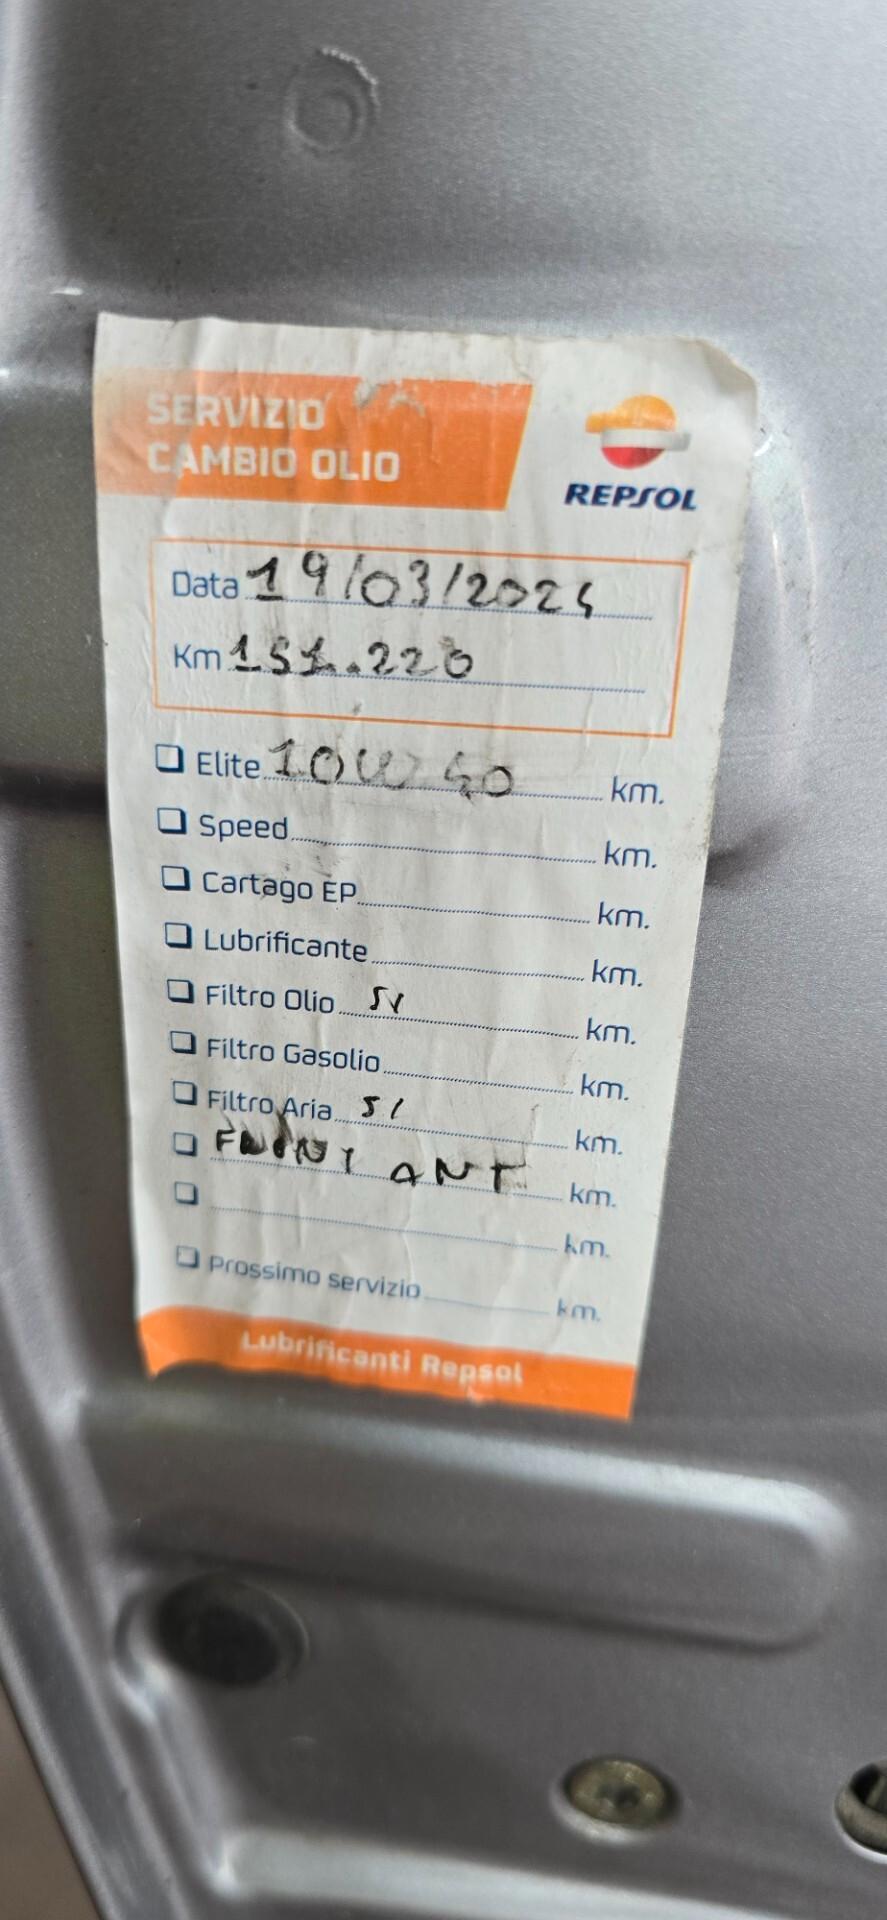 SERVIZIO
CAMBIO OLIO
REPSOL
Data 19/03/2024
Km 151.220
Elite 10W40 km.
Speed km.
Cartago EP km.
Lubrificante km.
Filtro Olio SI km.
Filtro Gasolio km.
Filtro Aria SI km.
ANT km.
km.
Prossimo servizio km.
Lubrificanti Repsol